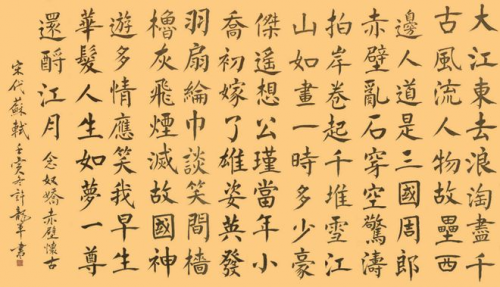 大江東去浪淘盡千
古風流人物故壘西
邊人道是三國周郎
赤壁亂石穿空驚濤
拍岸卷起千堆雪江
山如畫一時多少豪
傑遙想公瑾當年小
喬初嫁了雄姿英發
羽扇綸巾談笑間檣
櫓灰飛煙滅故國神
遊多情應笑我早生
華髮人生如夢一尊
還酹江月 念奴嬌赤壁懷古
宋代蘇軾壬寅冬計龍平書